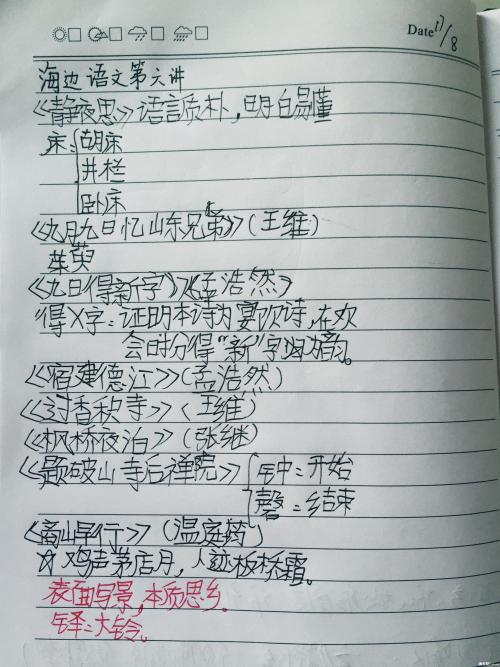 Date 17/8
海边语文第六讲
《静夜思》语言质朴，明白易懂
床：胡床
井栏
卧床
《九月九日忆山东兄弟》（王维）
茱萸
《九日得新字》（孟浩然）
得X字：证明本诗为宴饮诗，在欢
会时分得“新”字为韵。
《宿建德江》（孟浩然）
《过香积寺》（王维）
《枫桥夜泊》（张继）
《题破山寺后禅院》 钟=开始
磬=结束
《商山早行》（温庭筠）
☆鸡声茅店月，人迹板桥霜。
表面写景，本质思乡。
铎=大铃。